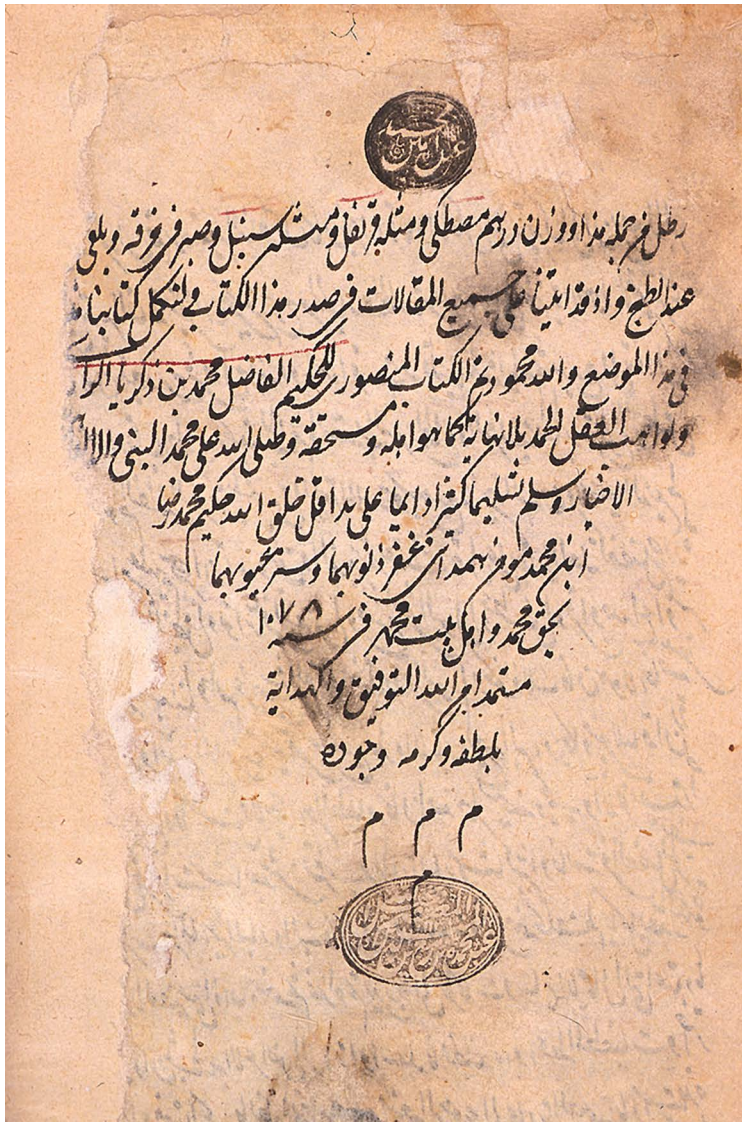 رطل من جمله هذا ووزن درهم مصطكى ومثله قرنفل ومثله سنبل وصبر في خرقه ويلقى
عند الطبخ واذ قد اتينا على جميع المقالات في صدر هذا الكتاب فلنكمل كتابنا
في هذا الموضع والله محمود تم الكتاب المنصورى للحكيم الفاضل محمد بن زكريا
ولواهب العقل الحمد بلا نهاية كما هو اهله و مستحقه وصلى الله على محمد النبى
الاخيار وسلم تسليما كثيرا دايما على يد اقل خلق الله حكيم محمد رضا
ابن محمد مومن همدانى غفر ذنوبهما وستر عيوبهما
بحق محمد واهل بيت محمد في سنه ١٠٧٨
مستمدا من الله التوفيق والهداية
بلطفه وكرمه وجوده
م م م